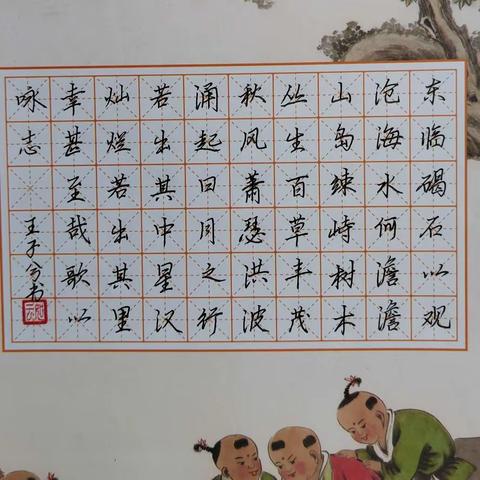 东临碣石以观
沧海水何澹澹
山岛竦峙树木
丛生百草丰茂
秋风萧瑟洪波
涌起日月之行
若出其中星汉
灿烂若出其里
幸甚至哉歌以
咏志
王子兮书